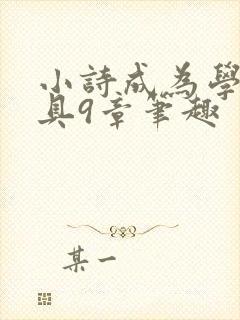 小詩成為學
具9章筆趣
某一